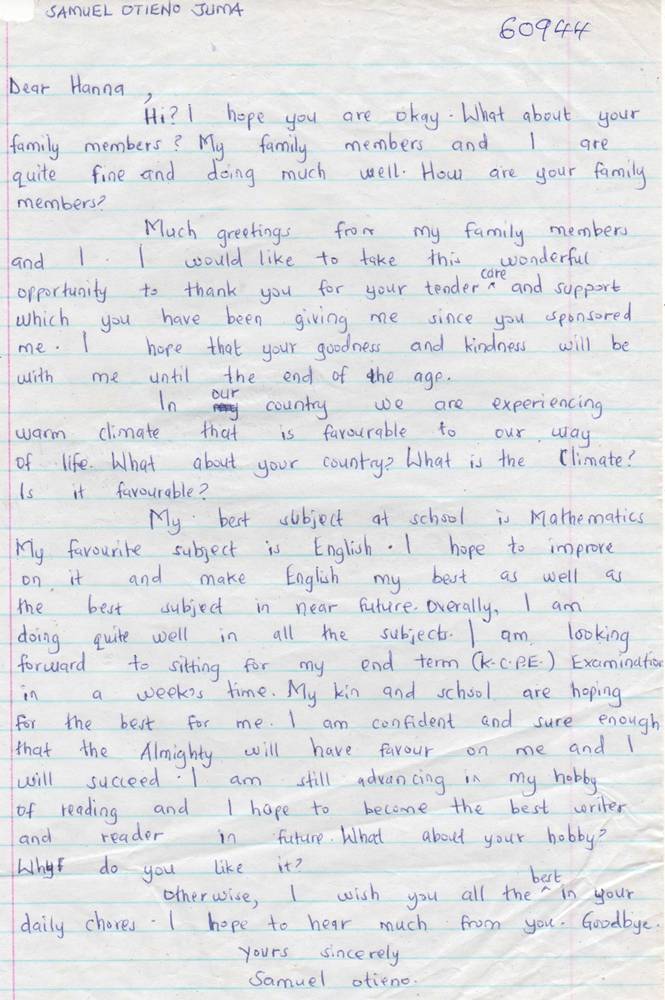 SAMUEL OTIENO JUMA
60944
Dear Hanna,
Hi? I hope you are okay. What about your
family members? My family members and I are
quite fine and doing much well. How are your family
members?
Much greetings from my family members
and I. I would like to take this wonderful
opportunity to thank you for your tender care and support
which you have been giving me since you sponsored
me. I hope that your goodness and kindness will be
with me until the end of the age.
In our country we are experiencing
warm climate that is favourable to our way
of life. What about your country? What is the Climate?
Is it favourable?
My best subject at school is Mathematics
My favourite subject is English. I hope to improve
on it and make English my best as well as
the best subject in near future. Overally, I am
doing quite well in all the subjects. I am looking
forward to sitting for my end term (K.C.P.E.) Examination
in a week's time. My kin and school are hoping
for the best for me. I am confident and sure enough
that the Almighty will have favour on me and I
will succeed. I am still advancing in my hobby
of reading and I hope to become the best writer
and reader in future. What about your hobby?
Why do you like it?
Otherwise, I wish you all the best in your
daily chores. I hope to hear much from you. Goodbye.
Yours sincerely
Samuel Otieno.